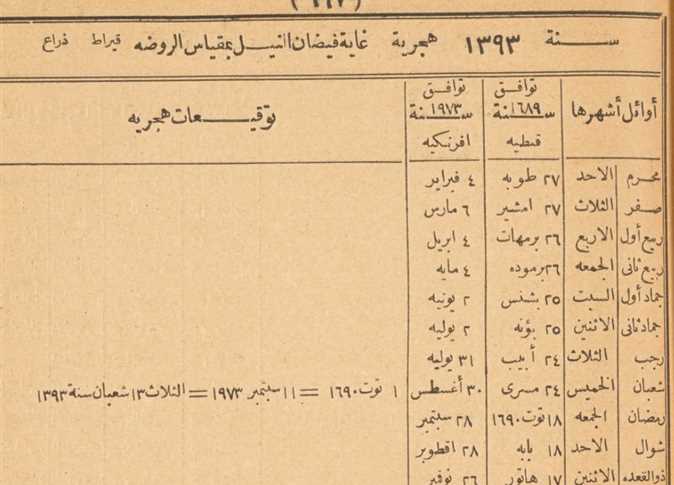 سنة ١٣٩٣ هجرية غاية فيضان النيل بمقياس الروضه قيراط ذراع
أوائل أشهرها توافق سنة ١٦٨٩ قبطيه توافق سنة ١٩٧٣ افرنكيه توقيعات هجريه
محرم الاحد ٢٧ طوبه ٤ فبراير
صفر الثلاث ٢٧ امشير ٦ مارس
ربيع أول الاربع ٢٦ برمهات ٤ ابريل
ربيع ثانى الجمعه ٢٦ برموده ٤ مايه
جماد أول السبت ٢٥ بشنس ٢ يونيه
جماد ثانى الاثنين ٢٥ بؤنه ٢ يوليه
رجب الثلاث ٢٤ أبيب ٣١ يوليه
شعبان الخميس ٢٤ مسرى ٣٠ أغسطس ١ توت ١٦٩٠ = ١١ سبتمبر ١٩٧٣ = الثلاث ١٣ شعبان سنة ١٣٩٣
رمضان الجمعه ١٨ توت ١٦٩٠ ٢٨ سبتمبر
شوال الاحد ١٨ بابه ٢٨ اقطوبر
ذوالقعده الاثنين ١٧ هاتور ٢٦ نوفبر